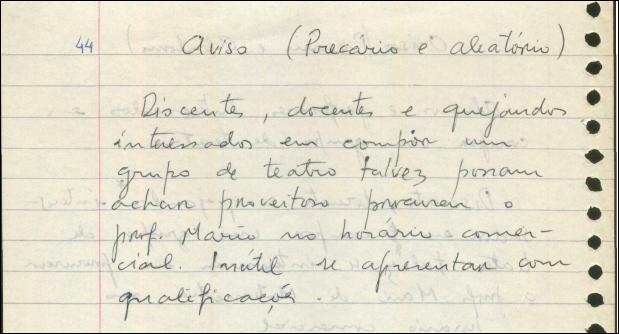 44 Aviso (Precário e aleatório)
Discentes, docentes e quejandos
interessados em compor um
grupo de teatro talvez possam
achar proveitoso procurar o
prof. Mario no horário comer-
cial. Inútil se apresentar com
qualificações